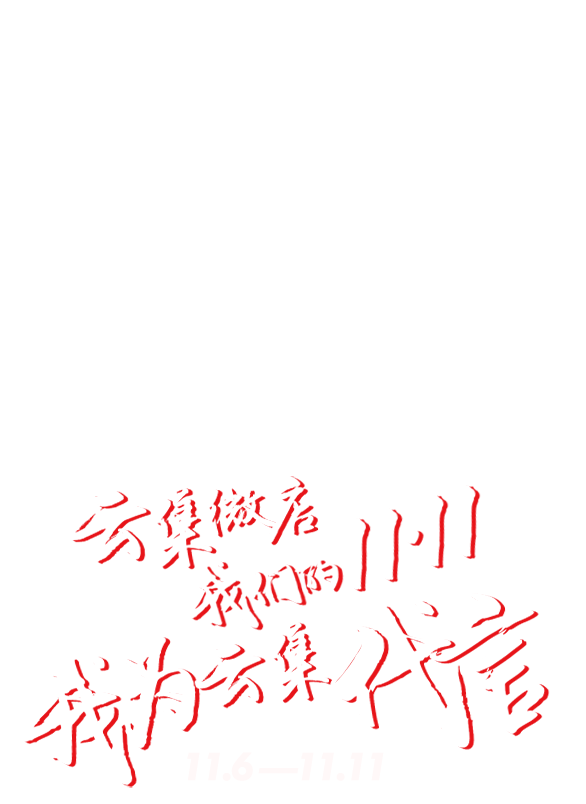 云集微店
我们的11·11
我为云集代言
11.6—11.11